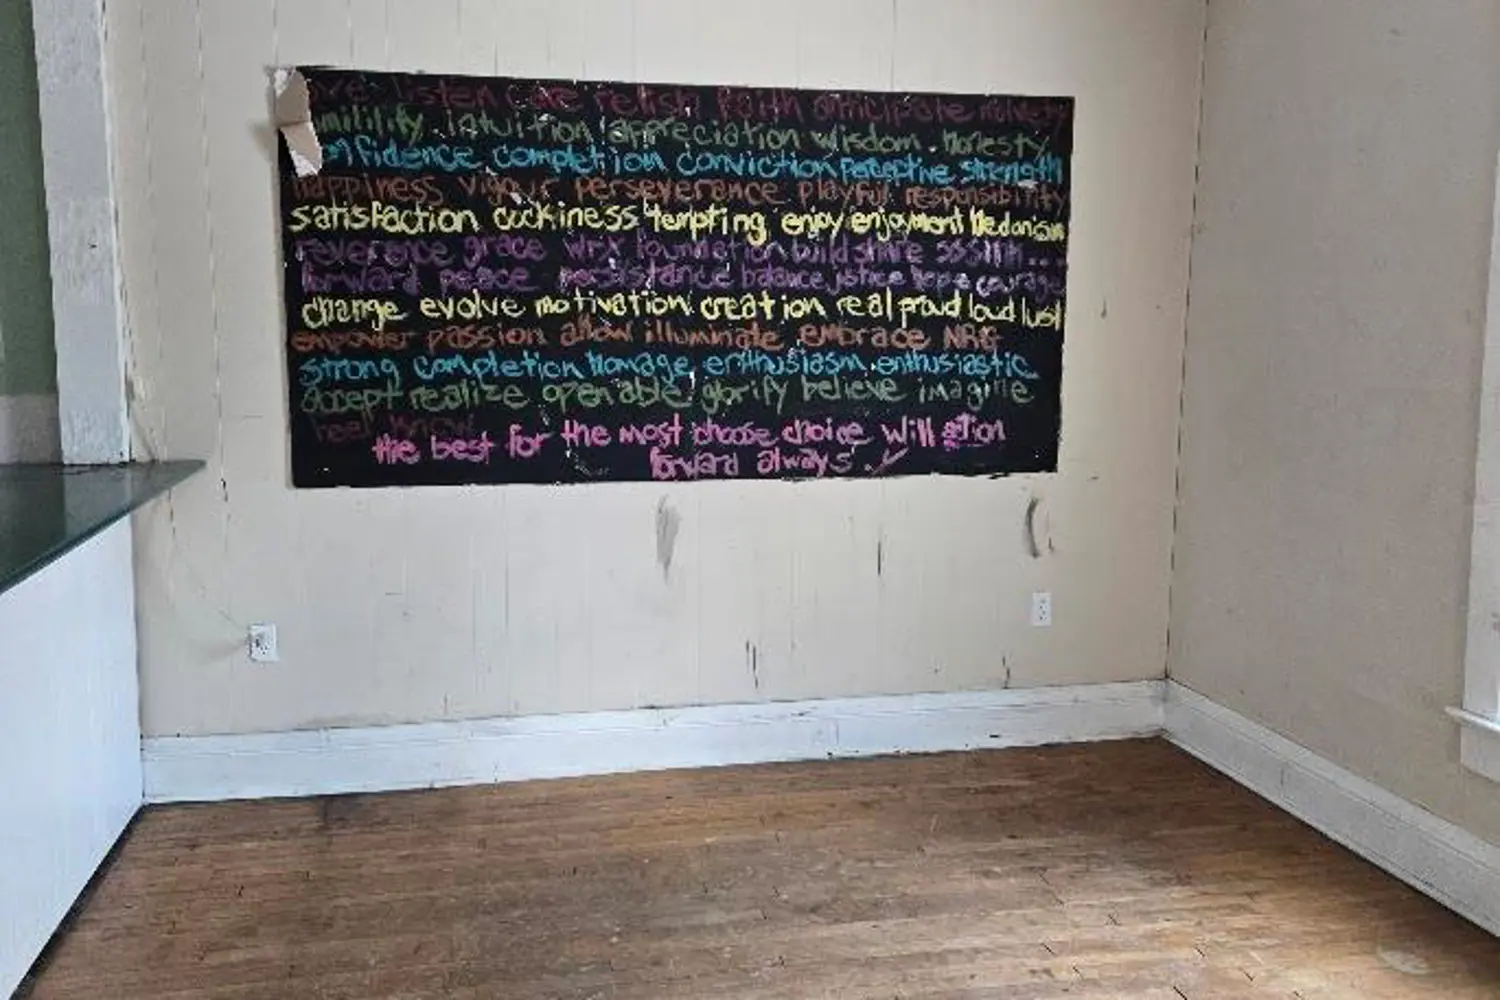 listen care relish faith anticipate
intuition appreciation wisdom honesty
completion conviction perceptive strength
happiness vigour perseverance playful responsibility
satisfaction cockiness tempting enjoy enjoyment Hedonism
reverence grace foundation build share ssshh...
forward peace persistance balance justice hope courage
change evolve motivation creation real proud loud lust
empower passion allow illuminate embrace NRG
strong completion Homage enthusiasm enthusiastic
accept realize open able glorify believe imagine
feel know
the best for the most choose choice will action
forward always